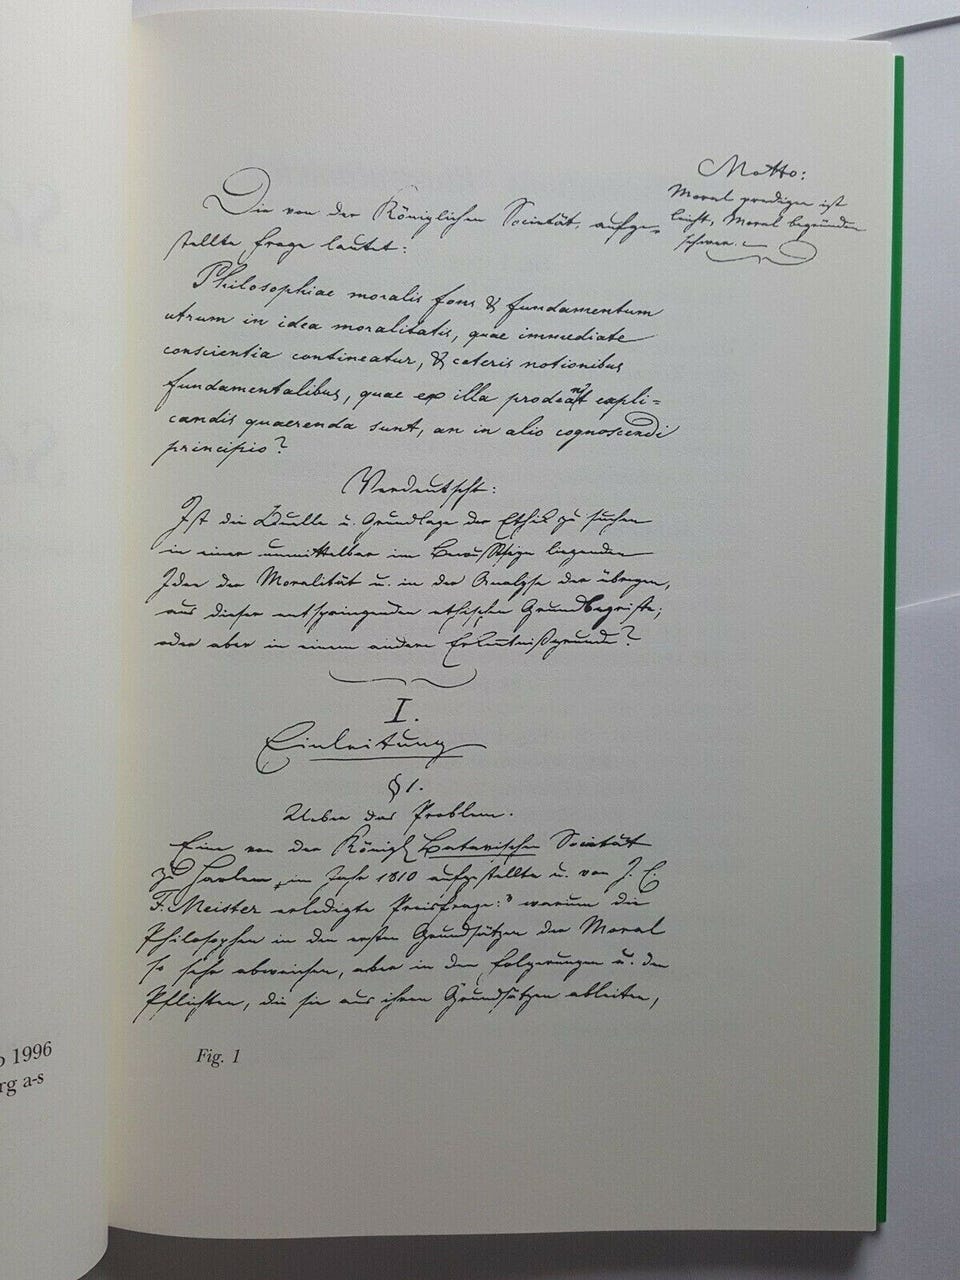 Motto:
Moral predigen ist
leicht, Moral begründen
schwer.
Die von der Königlichen Societät aufge-
stellte Frage lautet:
Philosophiae moralis fons & fundamentum
utrum in idea moralitatis, quae immediate
conscientia contineatur, & ceteris notionibus
fundamentalibus, quae ex illa prodeant expli=
candis quaerenda sunt, an in alio cognoscendi
principio?
Verdeutscht:
Ist die Quelle u. Grundlage der Ethik zu suchen
in einer unmittelbar im Bewußtseyn liegenden
Idee der Moralität u. in der Analyse der übrigen,
aus dieser entspringenden ethischen Grundbegriffe;
oder aber in einem andern Erkenntnißgrunde?
I.
Einleitung
§ 1.
Ueber das Problem.
Eine von der Königl Batavischen Societät
zu Harlem, im Jahr 1810 aufgestellte u. von J. C.
F. Meister erledigte Preisfrage: " warum die
Philosophen in den ersten Grundsätzen der Moral
so sehr abweichen, aber in den Folgerungen u. den
Pflichten, die sie aus ihren Grundsätzen ableiten,
Fig. 1
1996
rg a-s